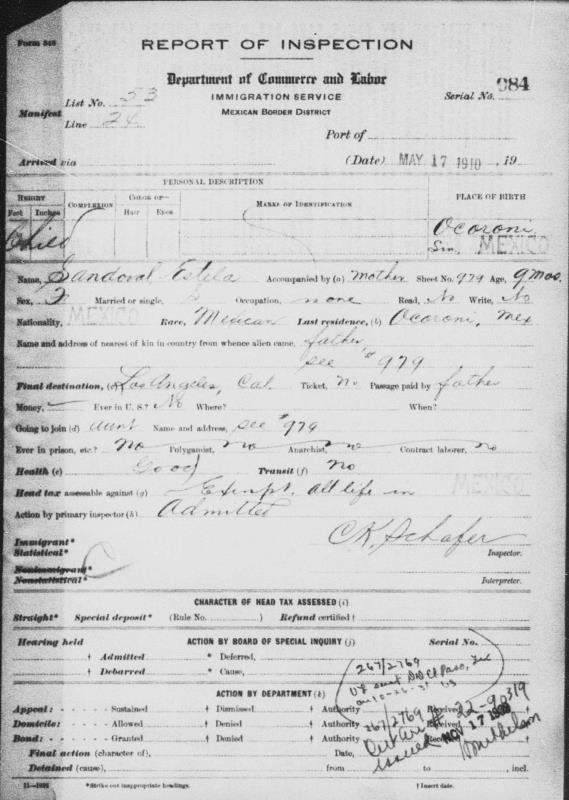 Form 548
REPORT OF INSPECTION
Department of Commerce and Labor
IMMIGRATION SERVICE
MEXICAN BORDER DISTRICT
Serial No. 984
Manifest
List No. 53
Line 24
Port of
Arrived via (Date) MAY 17 1910, 19
PERSONAL DESCRIPTION
HEIGHT
Feet Inches
COMPLEXION
COLOR OF—
Hair Eyes
MARKS OF IDENTIFICATION
PLACE OF BIRTH
Child
Ocoroni,
Sin, MEXICO
Name, Sandoval, Estela Accompanied by (a) mother Sheet No. 979 Age, 9 mos.
Sex, F Married or single, S Occupation, none Read, No Write, No
Nationality, MEXICO Race, Mexican Last residence, (b) Ocoroni, Mex
Name and address of nearest of kin in country from whence alien came, father,
see # 979
Final destination, (c) Los Angeles, Cal. Ticket, No Passage paid by father
Money, — Ever in U. S.? No Where? When?
Going to join (d) aunt Name and address, see # 979
Ever in prison, etc.? No Polygamist, no Anarchist, no Contract laborer, no
Health (e) Good Transit (f) No
Head tax assessable against (g) Exempt. all life in MEXICO
Action by primary inspector (h) Admitted
Immigrant*
Statistical*
C K, Schafer
Inspector.
Nonimmigrant*
Nonstatistical*
Interpreter.
CHARACTER OF HEAD TAX ASSESSED (i)
Straight* Special deposit* (Rule No. ) Refund certified †
Hearing held ACTION BY BOARD OF SPECIAL INQUIRY (j) Serial No.
† Admitted * Deferred,
† Debarred * Cause,
267/2769
El Paso, Tex
ACTION BY DEPARTMENT (k)
Appeal: Sustained † Dismissed † Authority Received
Domicile: Allowed † Denied † Authority Received
Bond: Granted † Denied † Authority Received
267/2769
Cert Arr # 22-90319
issued NOV 17 1938
Final action (character of), Date,
Detained (cause), from to , incl.
11—1892 *Strike out inappropriate headings. † Insert date.